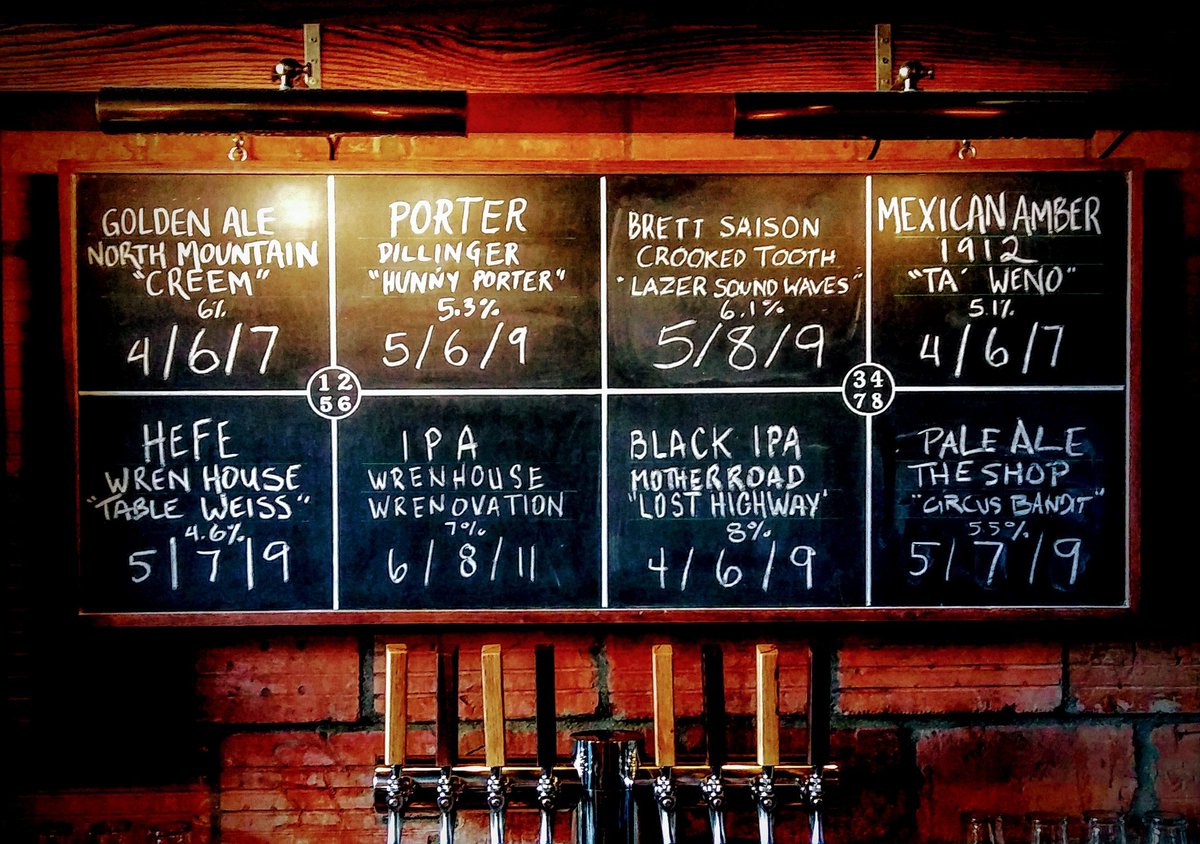 GOLDEN ALE
NORTH MOUNTAIN
"CREEM"
6%
4/6/7
PORTER
DILLINGER
"HUNNY PORTER"
5.3%
5/6/9
BRETT SAISON
CROOKED TOOTH
"LAZER SOUND WAVES"
6.1%
5/8/9
MEXICAN AMBER
1912
"TA' WENO"
5.1%
4/6/7
1 2
5 6
3 4
7 8
HEFE
WREN HOUSE
"TABLE WEISS"
4.6%
5/7/9
IPA
WRENHOUSE
WRENOVATION
7%
6/8/11
BLACK IPA
MOTHER ROAD
"LOST HIGHWAY'
8%
4/6/9
PALE ALE
THE SHOP
"CIRCUS BANDIT"
5.5%
5/7/9